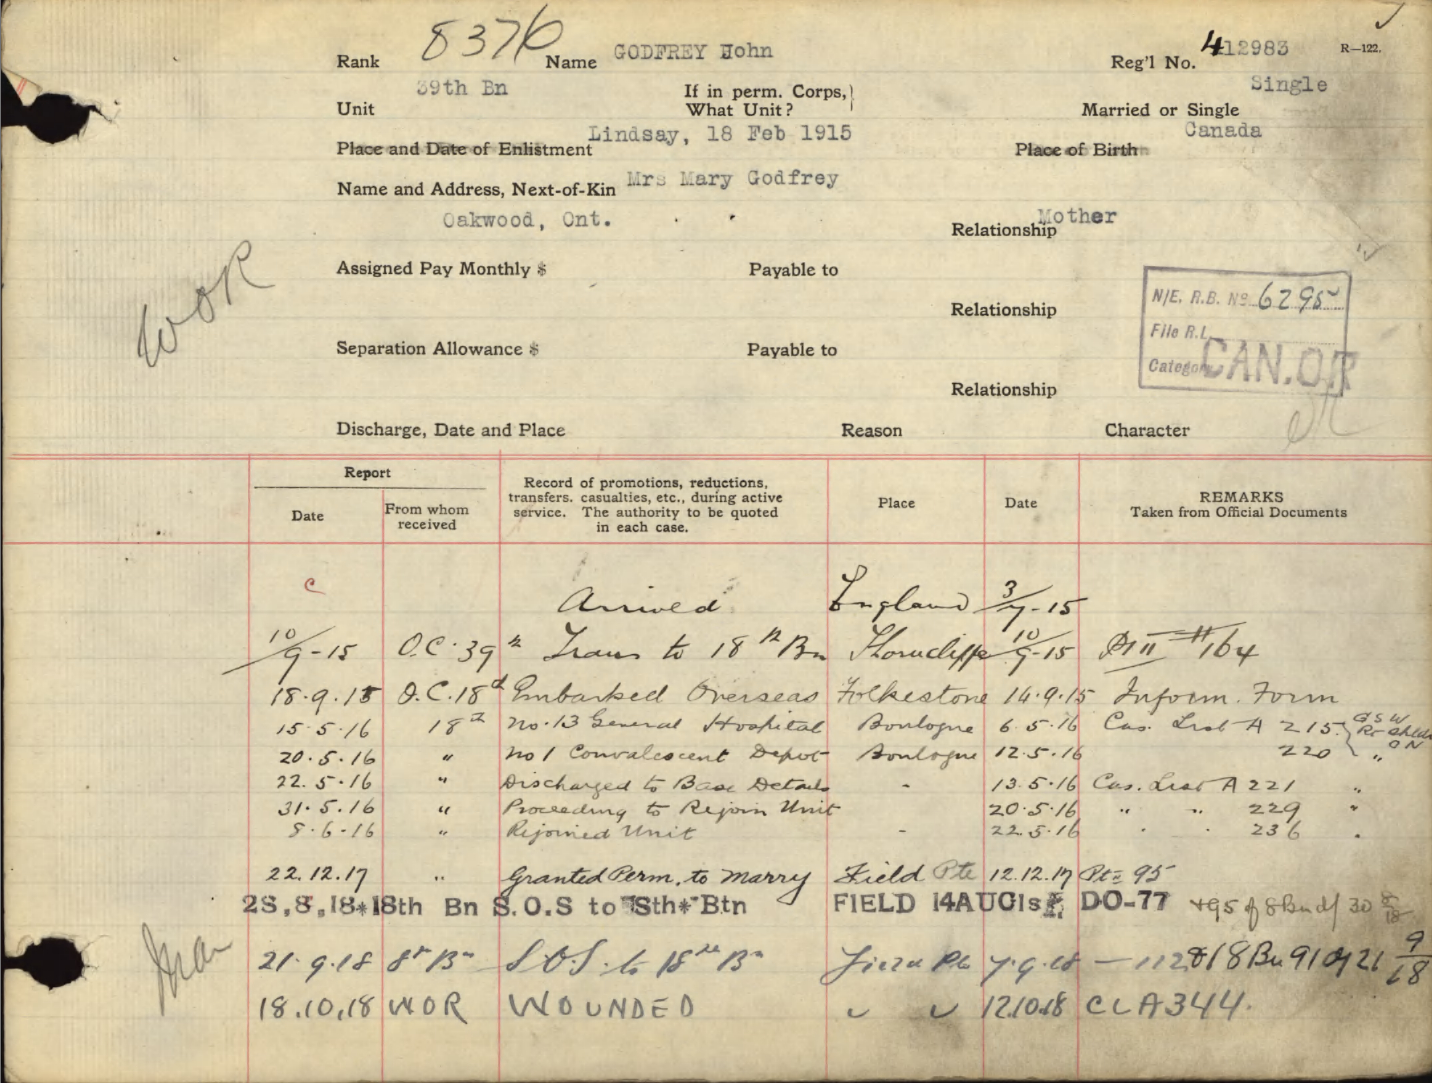 8376
Rank Name GODFREY John Reg'l No. 412983 R—122.
Unit 39th Bn If in perm. Corps, What Unit? Married or Single Single
Place and Date of Enlistment Lindsay, 18 Feb 1915 Place of Birth Canada
Name and Address, Next-of-Kin Mrs Mary Godfrey
Oakwood, Ont. Relationship Mother
WOR
Assigned Pay Monthly $ Payable to
N/E. R.B. No 6295
Relationship
File R.L.
Separation Allowance $ Payable to
Category CAN.OR
Relationship
Discharge, Date and Place Reason Character
Report
Date From whom received Record of promotions, reductions, transfers. casualties, etc., during active service. The authority to be quoted in each case. Place Date REMARKS Taken from Official Documents
C
Arrived England 3/7-15
10/9-15 O.C. 39th Trans to 18th Bn Shorncliffe 10/9-15 Pt II #164
18.9.15 O.C. 18th Embarked Overseas Folkestone 14.9.15 Inform. Form
15.5.16 18th No. 13 General Hospital Boulogne 6.5.16 Cas. List A 215 GSW
20.5.16 " No 1 Convalescent Depot Boulogne 12.5.16 220 "
22.5.16 " Discharged to Base Details - 13.5.16 Cas. List A 221 "
31.5.16 " Proceeding to Rejoin Unit 20.5.16 " " 229 "
5.6.16 " Rejoined Unit - 22.5.16 . . 236 .
22.12.17 " Granted Perm. to Marry Field Pte 12.12.17 Pt 2 95
28.8.18 18th Bn S.O.S to 8th Btn FIELD 14AUG18 DO-77 +95 of 8Bn d/ 30 8/18
21.9.18 8th Bn S.O.S. to 18th Bn Field 7.9.18 —112 18 Bn 91 21 9/18
18.10.18 WOR WOUNDED " " 12.10.18 CLA344.